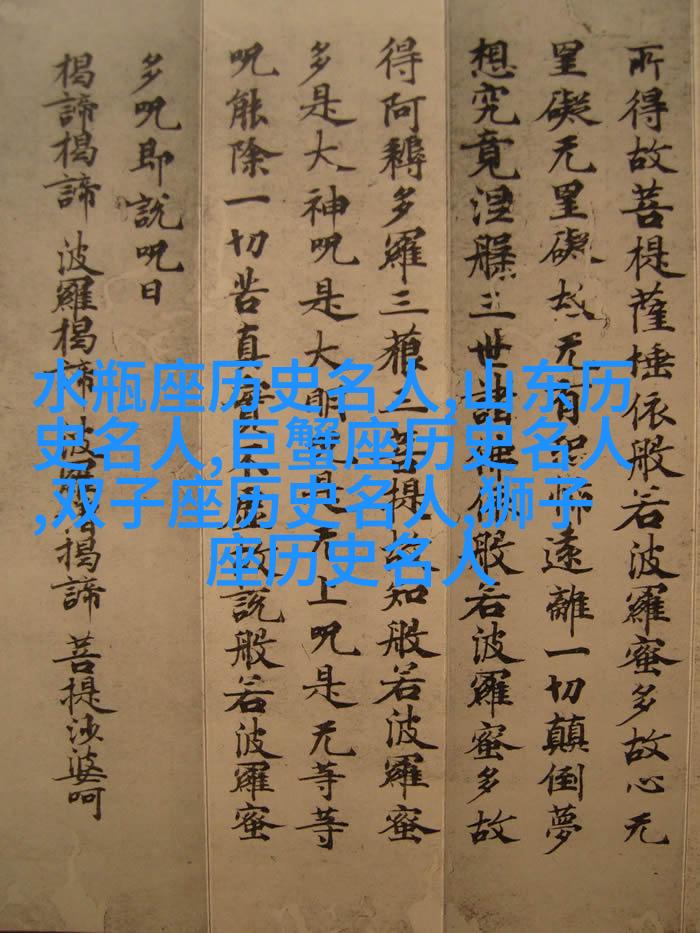 所得故菩提薩埵依般若波羅蜜多故心无
罣礙无罣礙故无有恐怖遠離一切顛倒夢
想究竟涅槃三世諸佛依般若波羅蜜多故
得阿耨多羅三藐三菩提故知般若波羅蜜
多是大神呪是大明呪是无上呪是无等等
呪能除一切苦真實不虛故說般若波羅蜜
多呪即說呪曰
揭諦揭諦 波羅揭諦 波羅僧揭諦 菩提沙婆呵
水瓶座历史名人,山东历
史名人,巨蟹座历史名人
,双子座历史名人,狮子
座历史名人